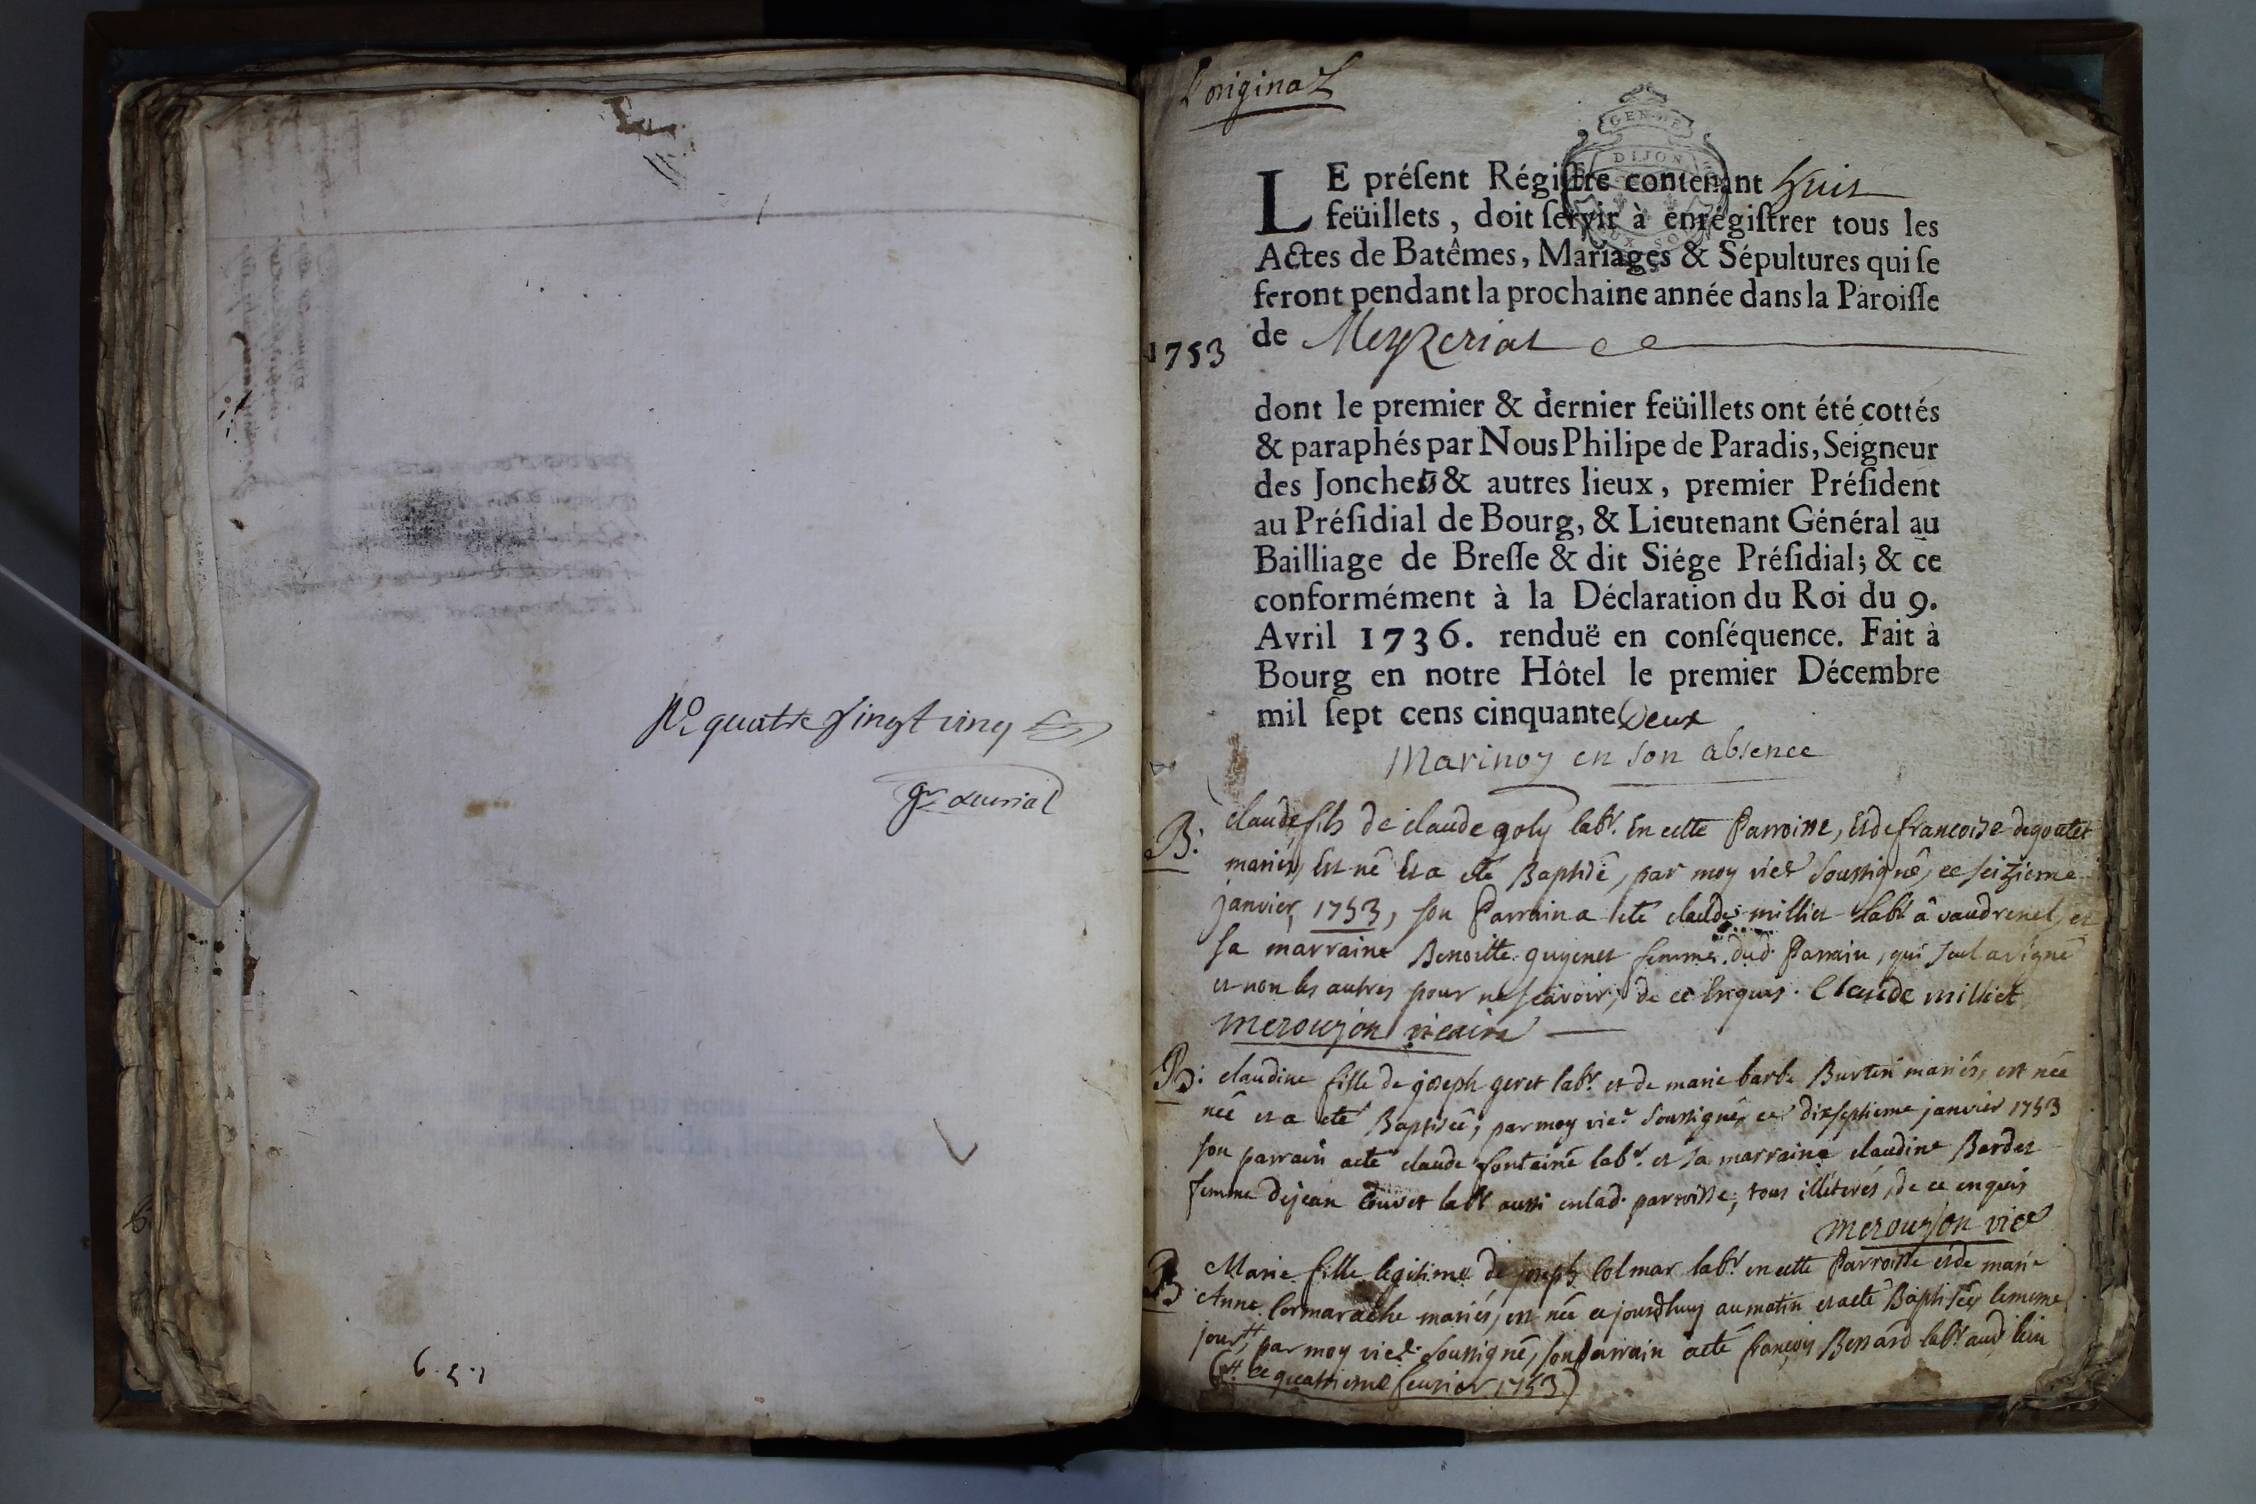 No quatre vingt cinq
L'original
GEN. DE
DIJON
LE préſent Régiſtre contenant huit
feüillets, doit ſervir à enrégiſtrer tous les
Actes de Batêmes, Mariages & Sépultures qui ſe
feront pendant la prochaine année dans la Paroiſſe
de Meyzeriat
1753
dont le premier & dernier feüillets ont été cottés
& paraphés par Nous Philipe de Paradis, Seigneur
des Jonchets & autres lieux, premier Préſident
au Préſidial de Bourg, & Lieutenant Général au
Bailliage de Breſſe & dit Siége Préſidial; & ce
conformément à la Déclaration du Roi du 9.
Avril 1736. renduë en conſéquence. Fait à
Bourg en notre Hôtel le premier Décembre
mil ſept cens cinquante Deux
Marinoy en son absence
B: claude fils de claude goly labr. En cette Parroisse, Et de francoise degoutet
mariés, Est né Et a eté Baptisé, par moy vicr soussigné, ce seizieme
janvier, 1753, son Parrain a eté claude milliet labr à vaudrenet, et
sa marraine Benoitte guyenet femme dud. Parrain, qui seul a signé
et non les autres pour ne sçavoir, de ce Enquis. Claude milliet
merouzon vicaire
B: claudine fille de joseph geret labr. et de marie barbe Burtin mariés, est née
née et a eté Baptisée, par moy vicr soussigné, ce dixseptieme janvier 1753
son parrain a eté claude fontaine labr. et sa marraine claudine Bardet
femme de jean Couvet labr aussi en lad. parroisse, tous illiterés, de ce enquis
merouzon vicr
B Marie fille legitime de joseph Colmar labr en cette Parroisse et de marie
Anne Cormarache mariés, est née ce jourdhuy au matin et a eté Baptisée le meme
jour # par moy vicr. soussigné, son parrain a eté françois Bernard labr aud. lieu
(# ce quatrieme fevrier 1753)